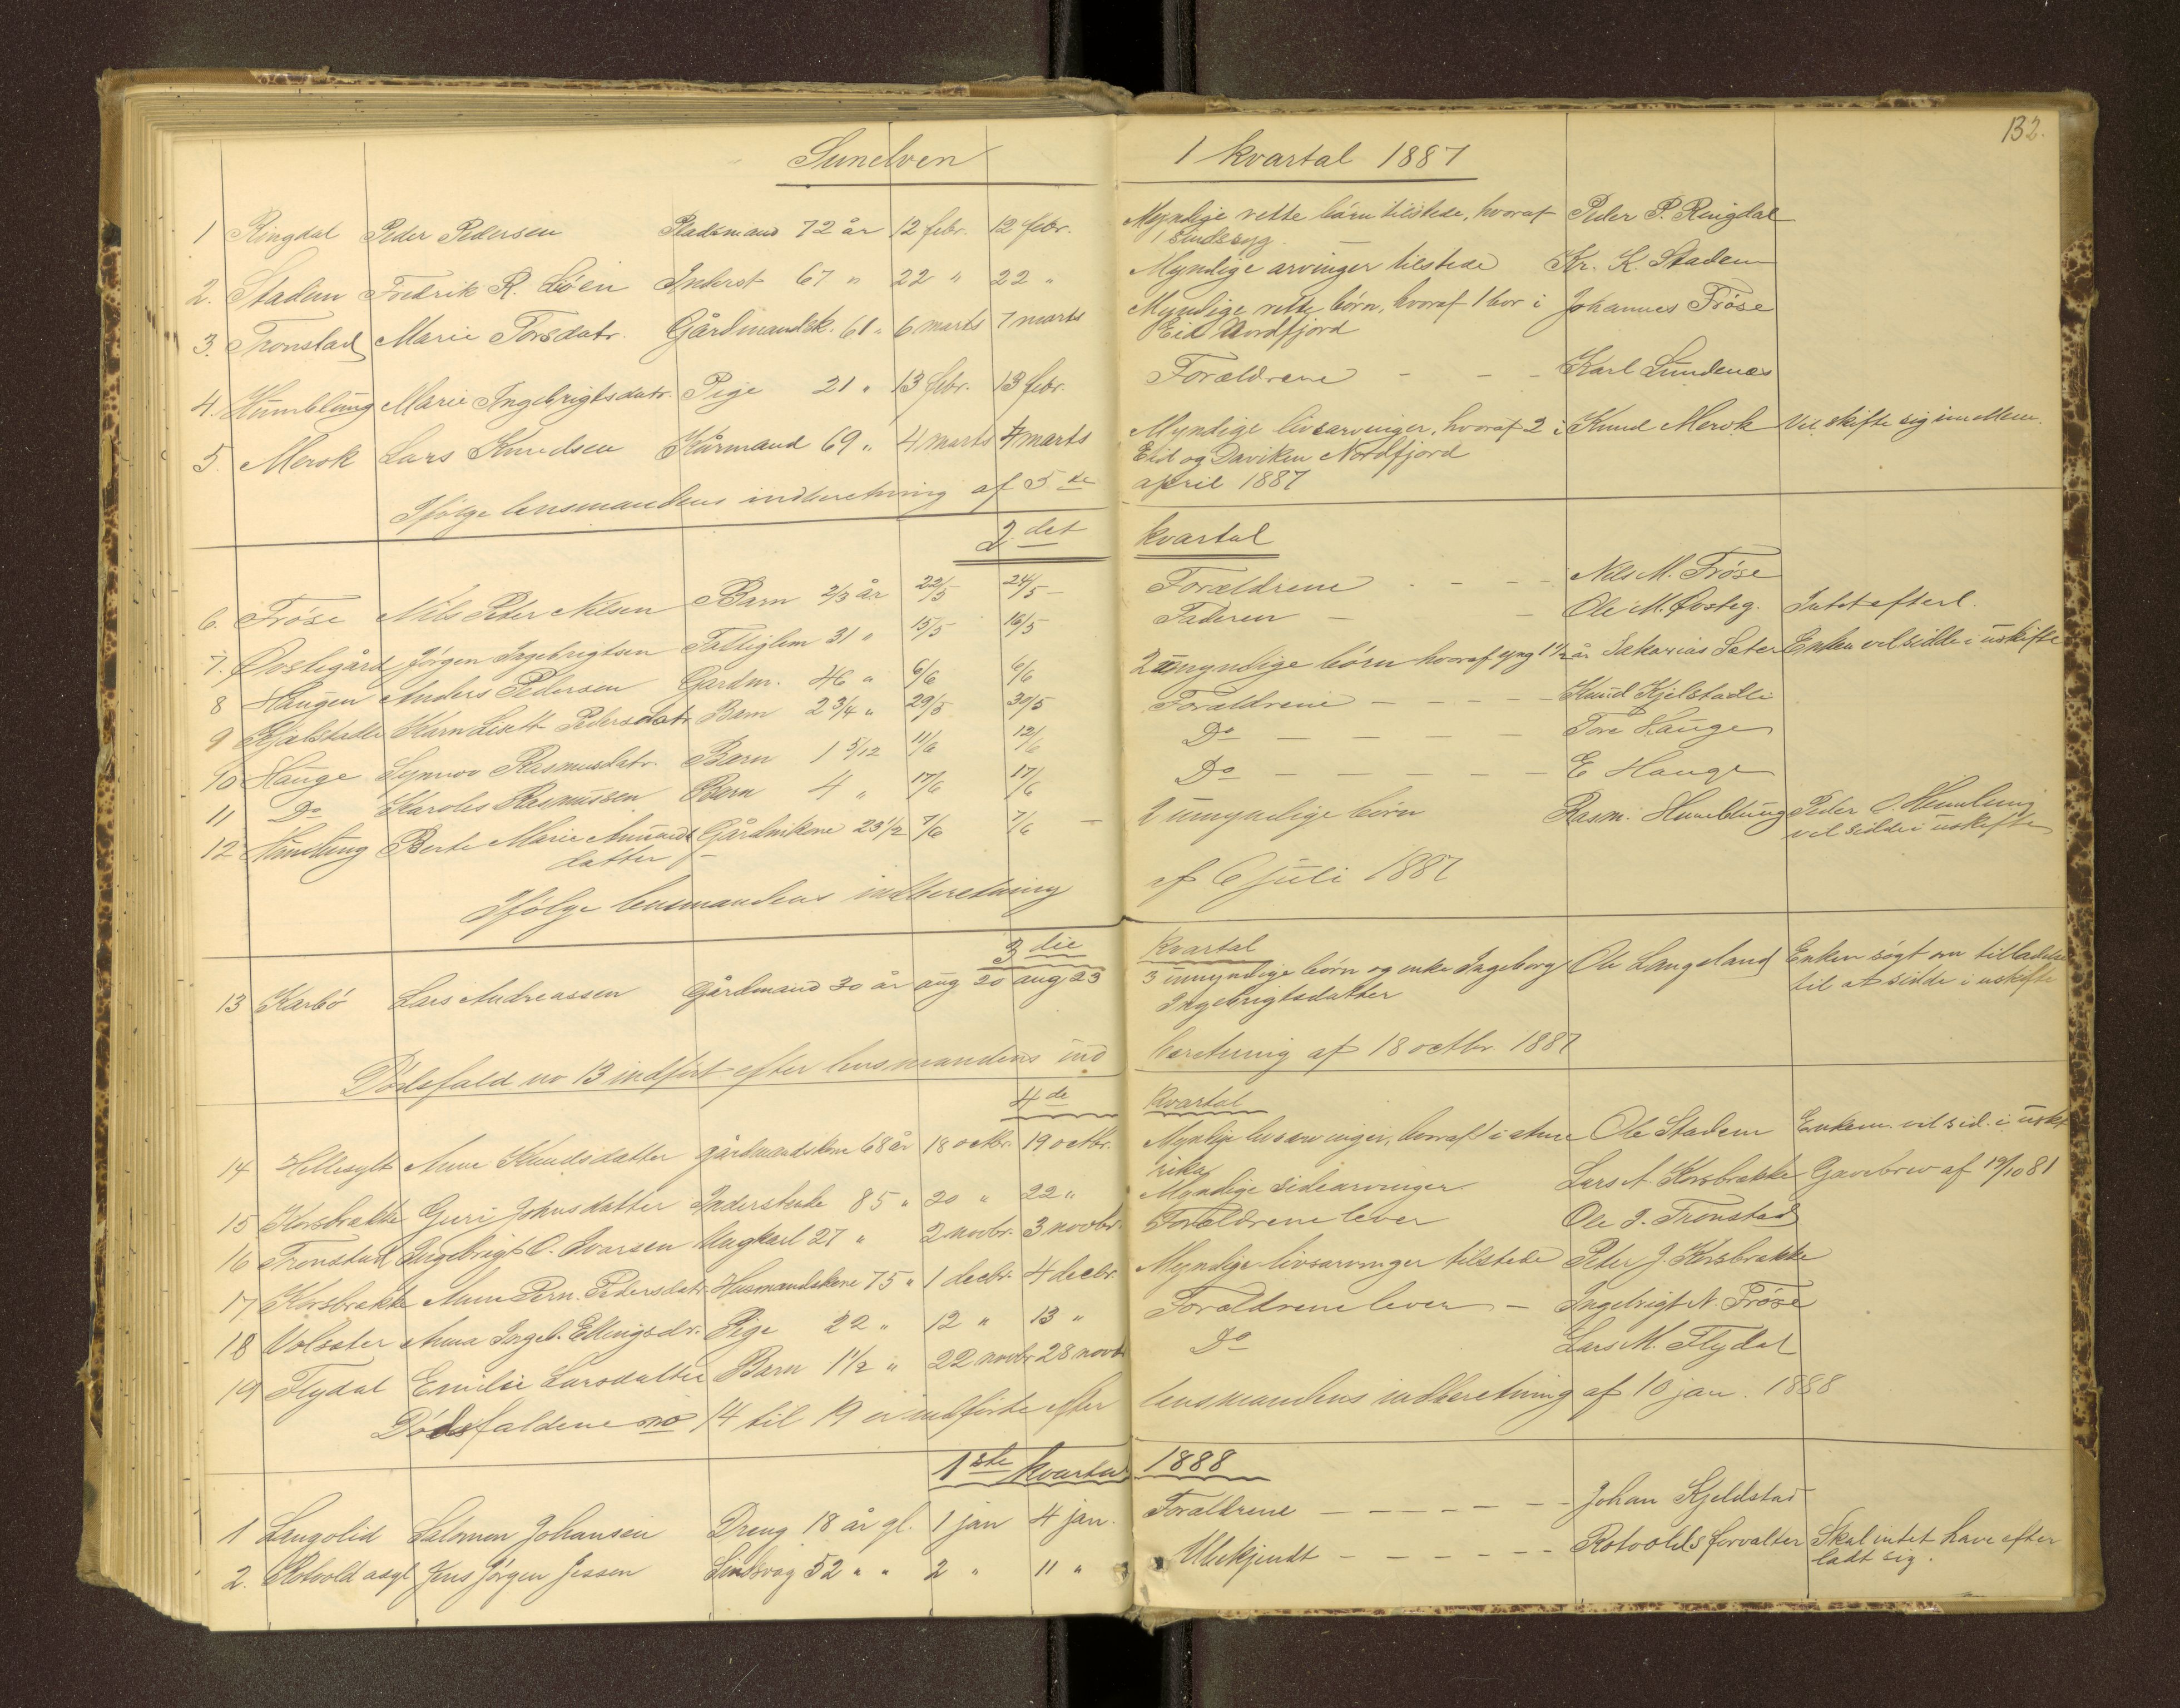 132.
Sunelven 1 kvartal 1887
1 Ringdal Peder Pedersen Pladsmand 72 år 12 febr. 12 febr. Myndige rette børn tilstede, hvoraf Peder P. Ringdal
1 sindssyg.
2. Stadem Fredrik R. Løen Inderst 67 " 22 " 22 " Myndige arvinger tilstede Kr. K. Stadem
3. Tronstad Marie Torsdatr. Gårdmandsk. 61 " 6 marts 7 marts Myndige rette børn, hvoraf 1 bor i Johannes Frøse
Eid Nordfjord
4. Humblung Marie Ingebrigtsdatr. Pige 21 " 13 febr. 13 febr. Forældrene - - - Karl Sundenæs
5. Merok Lars Knudsen Kårmand 69 " 4 marts 4 marts Myndige livsarvinger, hvoraf 2 i Knud Merok Vil skifte sig imellem.
Eid og Daviken Nordfjord
Ifølge lensmandens indberetning af 5te april 1887
2det kvartal
6. Frøse Nils Peter Nilsen Barn 2/3 år 22/5 24/5 - Forældrene - - - Nils M. Frøse
7. Øvstegård Jørgen Ingebrigtsen Fattiglem 31 " 15/5 16/5 Faderen - - Ole M. Øvsteg. Intet efterl.
8 Haugen Anders Pedersen Gardm. 46 " 6/6 6/6 2 umyndige børn hvoraf yng 1 1/2 år Sakarias Sæter Enken vil sidde i uskifte
9 Kjelstadli Karn Lisett Pedersdatr Barn 2 3/4 " 29/5 30/5 Forældrene - - - - Knud Kjelstadli
10 Hauge Synnov Rasmusdatr. Barn 1 5/12 11/6 12/6 Do - - - - - Tore Hauge
11 Do Karoles Rasmussen Barn 4 " 17/6 17/6 Do - - - - - E Hauge
12 Humlung Berte Marie Amunds Gårdmkone 23 1/2 7/6 7/6 - 2 umyndige børn Rasm. Humblung Peder O. Humlung
datter vil sidde i uskifte
Ifølge lensmandens indberetning af 6 juli 1887
3die kvartal
13 Karbø Lars Andreassen Gårdmand 30 år aug 20 aug 23 3 umyndige børn og enke Ingeborg Ole Langeland Enken søgt om tilladelse
Ingebrigtsdatter til at sidde i uskifte
Dødsfald no 13 indført efter lensmandens ind beretning af 18 octbr. 1887
4de kvartal
14 Hellesylt Anne Knudsdatter gårdmandskone 68 år 18 octbr. 19 octbr. Myndige livsarvinger, hvoraf 1 i Ame Ole Stadem Enkem. vil sid. i uskt
rika
15 Korsbrække Guri Johnsdatter Inderstenke 85 " 20 " 22 " Myndige sidearvinger Lars A. Korsbrække Gavebrev af 19/10 81
16 Tronstad Ingebrigt O. Ivarsen Ungkarl 27 " 2 novbr. 3 novbr. Forældrene lever Ole I. Tronstad
17 Korsbrække Anne Pern. Pedersdatr. Husmandskone 75 " 1 decbr. 4 decbr. Myndige livsarvinger tilstede Peter J. Korsbrække
18 Volsæter Anna Ingeb. Ellingsdr. Pige 22 " 12 " 13 " Forældrene lever - Ingebrigt N. Frøse
19 Flydal Emilie Larsdatter Barn 1 1/2 " 22 novbr 28 novb Do Lars M. Flydal
Dødsfaldene no 14 til 19 er indførte efter lensmandens indberetning af 10 jan. 1888
1ste kvartal 1888
1 Langolid Salomon Johansen Dreng 18 år gl. 1 jan 4 jan. Forældrene - - - - - - Johan Kjeldstad
2. Rotvold asyl Jens Jørgen Jessen Sindssvag 52 " " 2 " 11 " Ubekjendt - - - - - Rotvolds forvalter Skal intet have efter
ladt sig.